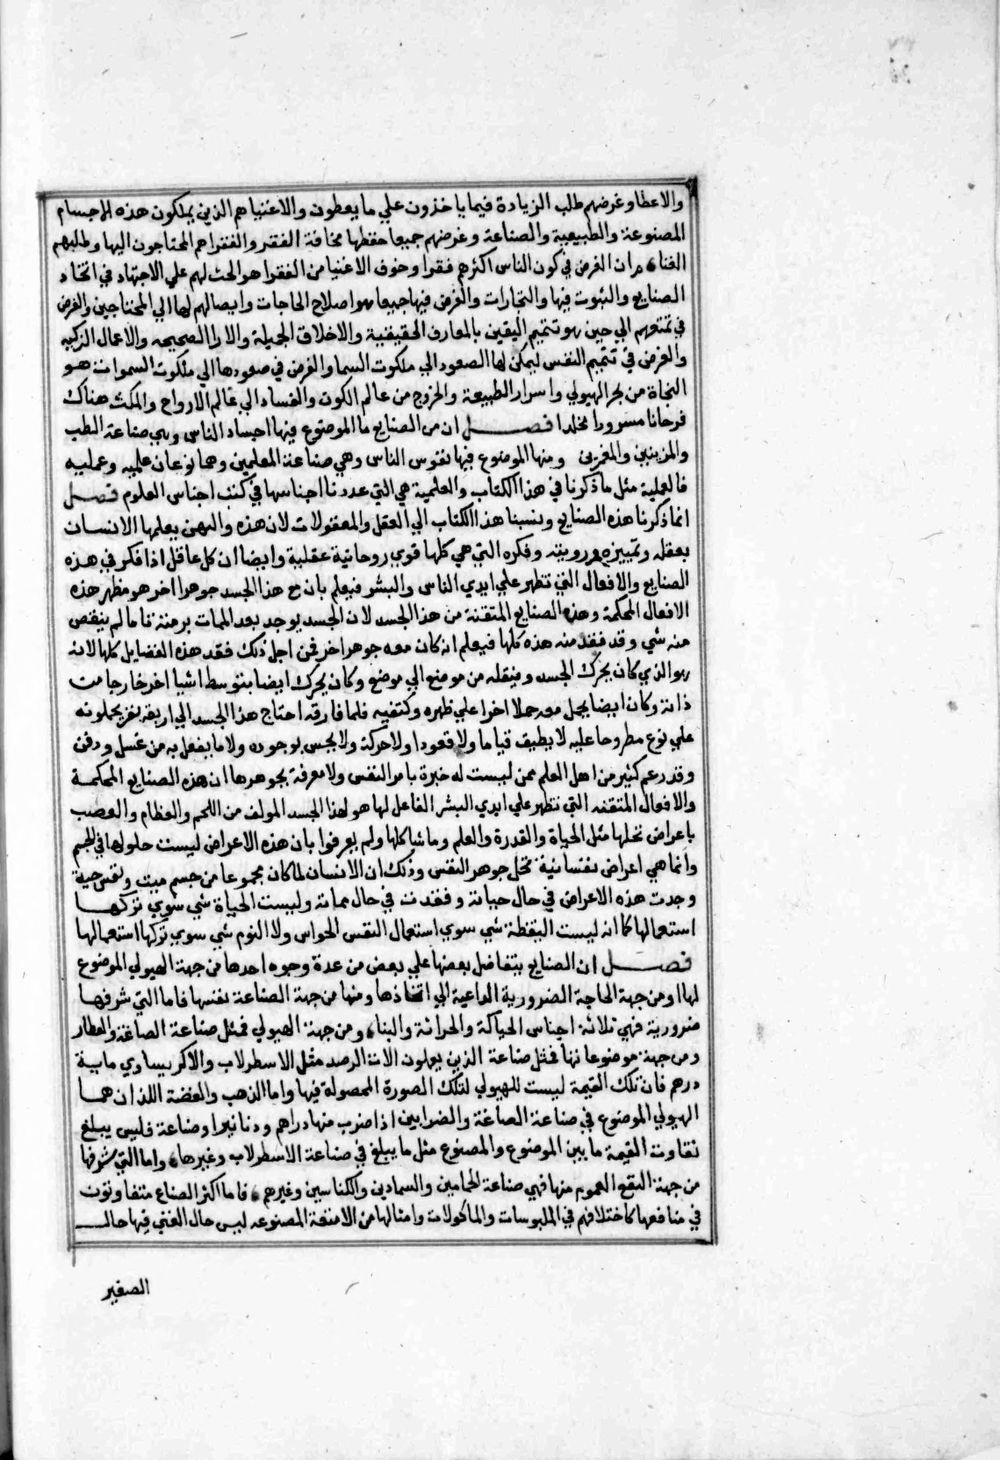 والاعطا وغرضهم طلب الزيادة فيما ياخذون علي ما يعطون والاغنيا هم الذين يملكون هذه الاجسام
المصنوعة والطبيعية والصناعة وغرضهم جميعا حفظها مخافة الفقر والفقرا هم المحتاجون اليها وطلبهم
الغناء ثم ان الغرض في كون الناس اكثرهم فقرا وخوف الاغنيا من الفقرا هو الحث لهم علي الاجتهاد في اتخاد
الصنايع والثبوت فيها والتجارات والغرض فيها جميعا هو اصلاح الحاجات وايصالهم لها الي المحتاجين والغرض
في تمتعهم الي حين هو تتميم اليقين بالمعارف الحقيقية والاخلاق الجميلة والارا الصحيحه والاعمال الزكيه
والغرض في تتميم النفس ليمكن لها الصعود الي ملكوت السما والغرض في صعودها الي ملكوت السموات هو
النجاة من بحر الهيولي واسرار الطبيعة والخروج من عالم الكون والفساد الي عالم الارواح والمكث هناك
فرحانا مسرورا مخلدا فصل ان من الصنايع ما الموضوع فيها اجساد الناس وهي صناعة الطب
والمزينين ومنها الموضوع فيها نفوس الناس وهي صناعة المعلمين وهما نوعان علميه وعمليه
فالعملية مثل ما ذكرنا في هذا الكتاب والعلمية هي التي عددنا اجناسها في كتب اجناس العلوم فصل
انما ذكرنا هذه الصنايع ونسبنا هذا الكتاب الي العقل والمعقولات لان هذه والمهن يعلمها الانسان
بعقله وتمييزه ورويته وفكره التي هي كلها قوي روحانية عقلية وايضا ان كل عاقل اذا فكر في هذه
الصنايع والافعال التي تظهر علي ايدي الناس والبشر فيعلم بان مع هذا الجسد جوهرا اخر هو مظهر هذه
الافعال المحكمة وهذه الصنايع المتقنة من هذا الجسد لان الجسد يوجد بعد الممات برمته تاما لم ينقص
منه شي وقد فقد منه هذه كلها فيعلم انه كان معه جوهر اخر فمن اجل ذلك فقد هذه الفضايل كلها لانه
هو الذي كان يحرك الجسد وينقله من موضع الي موضع وكان يحرك ايضا بتوسط اشيا اخر خارجا من
ذاته وكان ايضا يحمل معه حملا اخرا علي ظهره وكتفيه فلما فارقه احتاج هذا الجسد الي اربعة نفر يحملونه
علي نوع مطروحا عليه لا يطيق قياما ولا قعودا ولا حركة ولا يحس بوجوده ولا ما يفعل به من غسل ودفن
وقد زعم كثير من اهل العلم ممن ليست له خبرة بامر النفس ولا معرفة بجوهرها ان هذه الصنايع المحكمة
والافعال المتقنه التي تظهر علي ايدي البشر الفاعل لها هو لهذا الجسد المولف من اللحم والعظام والعصب
باعراض تحلها مثل الحياة والقدرة والعلم وما شاكلها ولم يعرفوا بان هذه الاعراض ليست حلولها في الجسم
وانما هي اعراض نفسانية تحل جوهر النفس وذلك ان الانسان لما كان مجموعا من جسم ميت ونفس حية
وجدت هذه الاعراض في حال حياته وفقدت في حال مماته وليست الحياة شي سوي تركها
استعمالها كما انه ليست اليقظة شي سوي استعمال النفس الحواس ولا النوم شي سوي تركها استعمالها
فصل ان الصنايع يتفاضل بعضها علي بعض من عدة وجوه احدها من جهة الهيولي الموضوع
لها او من جهة الحاجة الضرورية الداعية الي اتخاذها ومنها من جهة الصناعة نفسها فاما التي شرفها
ضرورية فهي ثلاثة اجناس الحياكة والحراثة والبناء ومن جهة الهيولي فمثل صناعة الصاغة والعطار
ومن جهة موضوعاتها فمثل صناعة الذين يعملون الات الرصد مثل الاسطرلاب والاكر يساوي ماية
درهم فان تلك القيمة ليست للهيولي لتلك الصورة المحصولة فيها واما الذهب والفضة اللذان هما
الهيولي الموضوع في صناعة الصاغة والضرابين اذا ضرب منها دراهم ودنانير او صناعة فليس يبلغ
تفاوت القيمة ما بين الموضوع والمصنوع مثل ما يبلغ في صناعة الاسطرلاب وغيرها واما التي شرفها
من جهة النفع العموم منها فهي صناعة الحمامين والسمادين والكناسين وغيرهم فاما اكثر الصناع متفاوتون
في منافعها كاختلافهم في الملبوسات والماكولات وامثالها من الامتعة المصنوعه ليس حال الغني فيها حال
الصغير